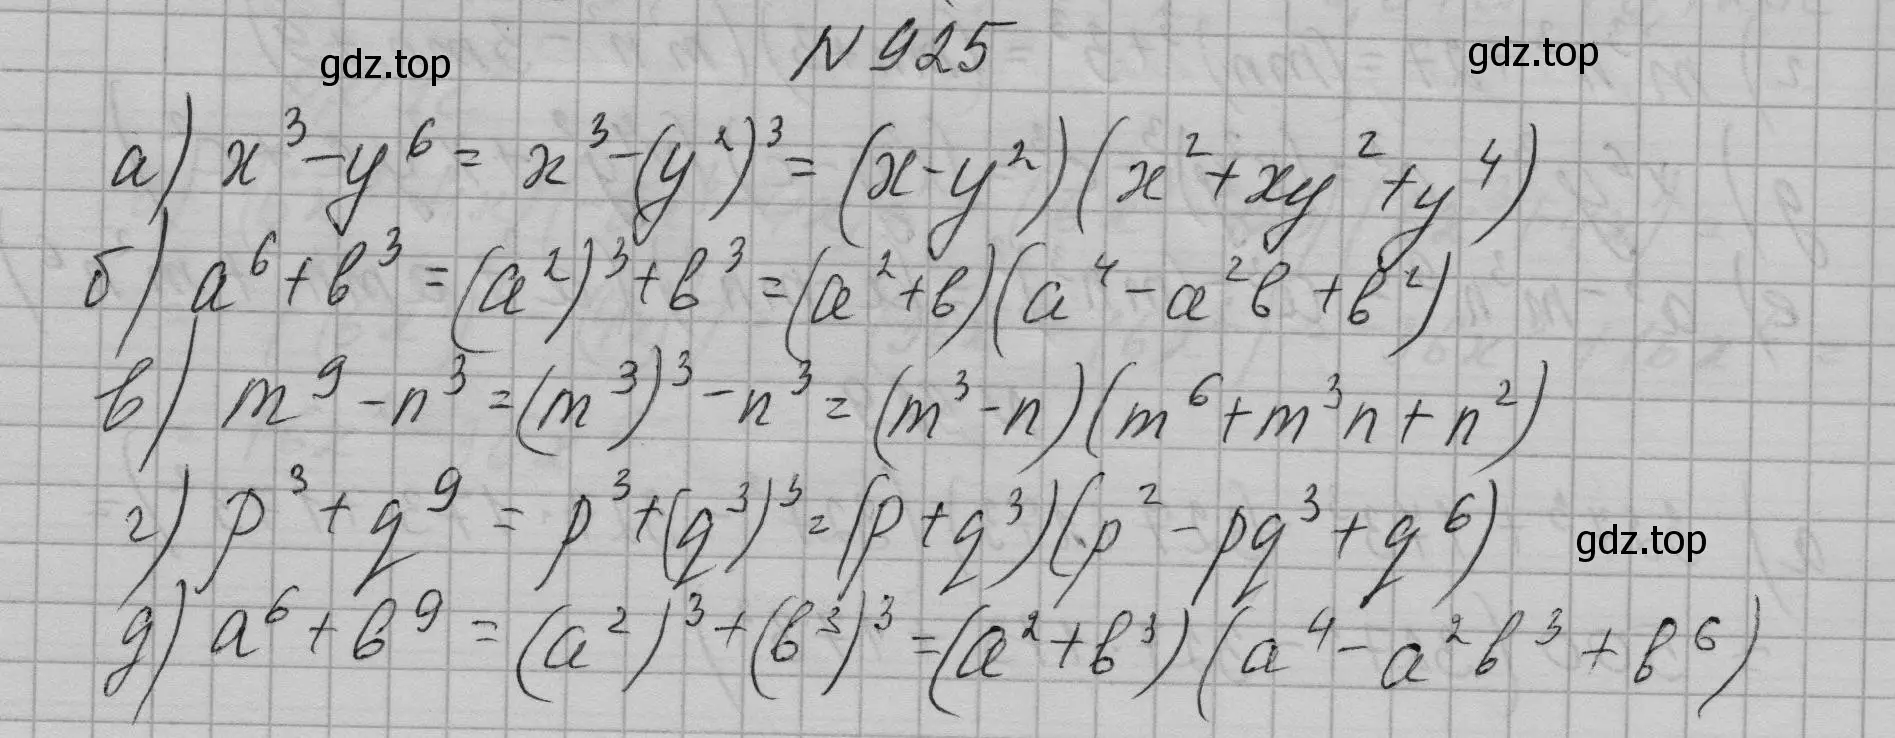 gdz.top
№ 925
gdz.top
а) x³ - y⁶ = x³ - (y²)³ = (x - y²)(x² + xy² + y⁴)
б) a⁶ + b³ = (a²)³ + b³ = (a² + b)(a⁴ - a²b + b²)
в) m⁹ - n³ = (m³)³ - n³ = (m³ - n)(m⁶ + m³n + n²)
г) p³ + q⁹ = p³ + (q³)³ = (p + q³)(p² - pq³ + q⁶)
gdz.top
д) a⁶ + b⁹ = (a²)³ + (b³)³ = (a² + b³)(a⁴ - a²b³ + b⁶)